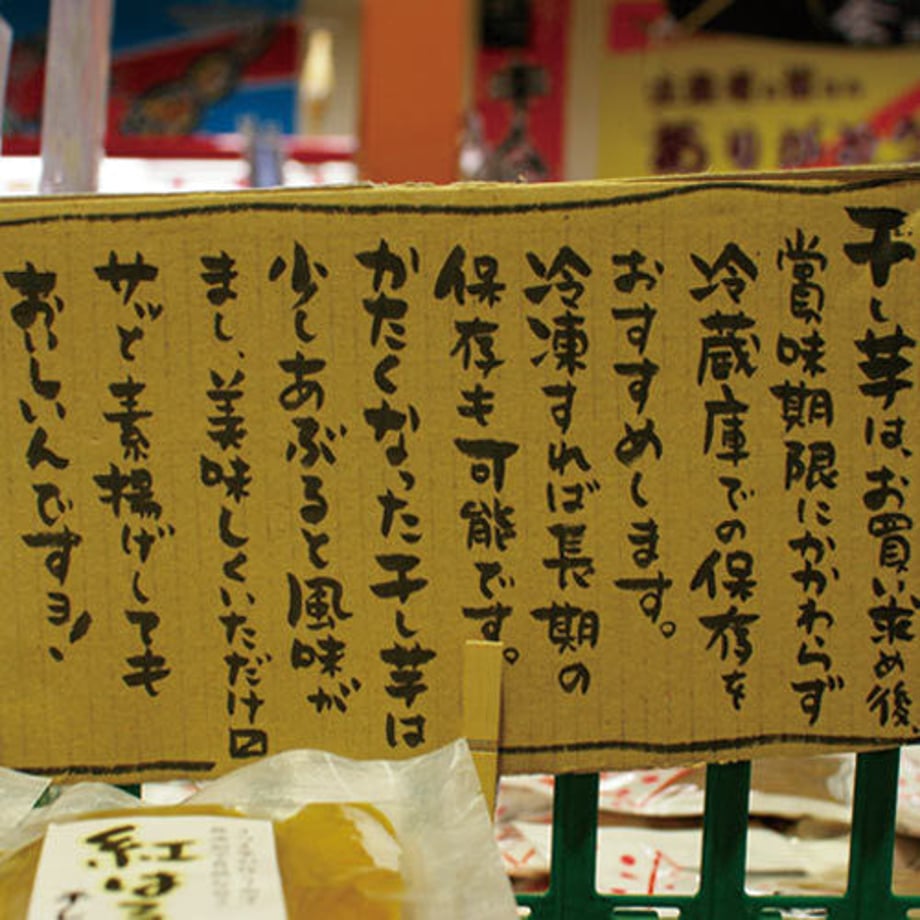 干し芋は、お買い求め後、
賞味期限にかかわらず
冷蔵庫での保存を
おすすめします。
冷凍すれば長期の
保存も可能です。
かたくなった干し芋は
少しあぶると風味が
まし、美味しくいただけ〼
サッと素揚げしても
おいしいんですョ!
ありがとう
紅はる